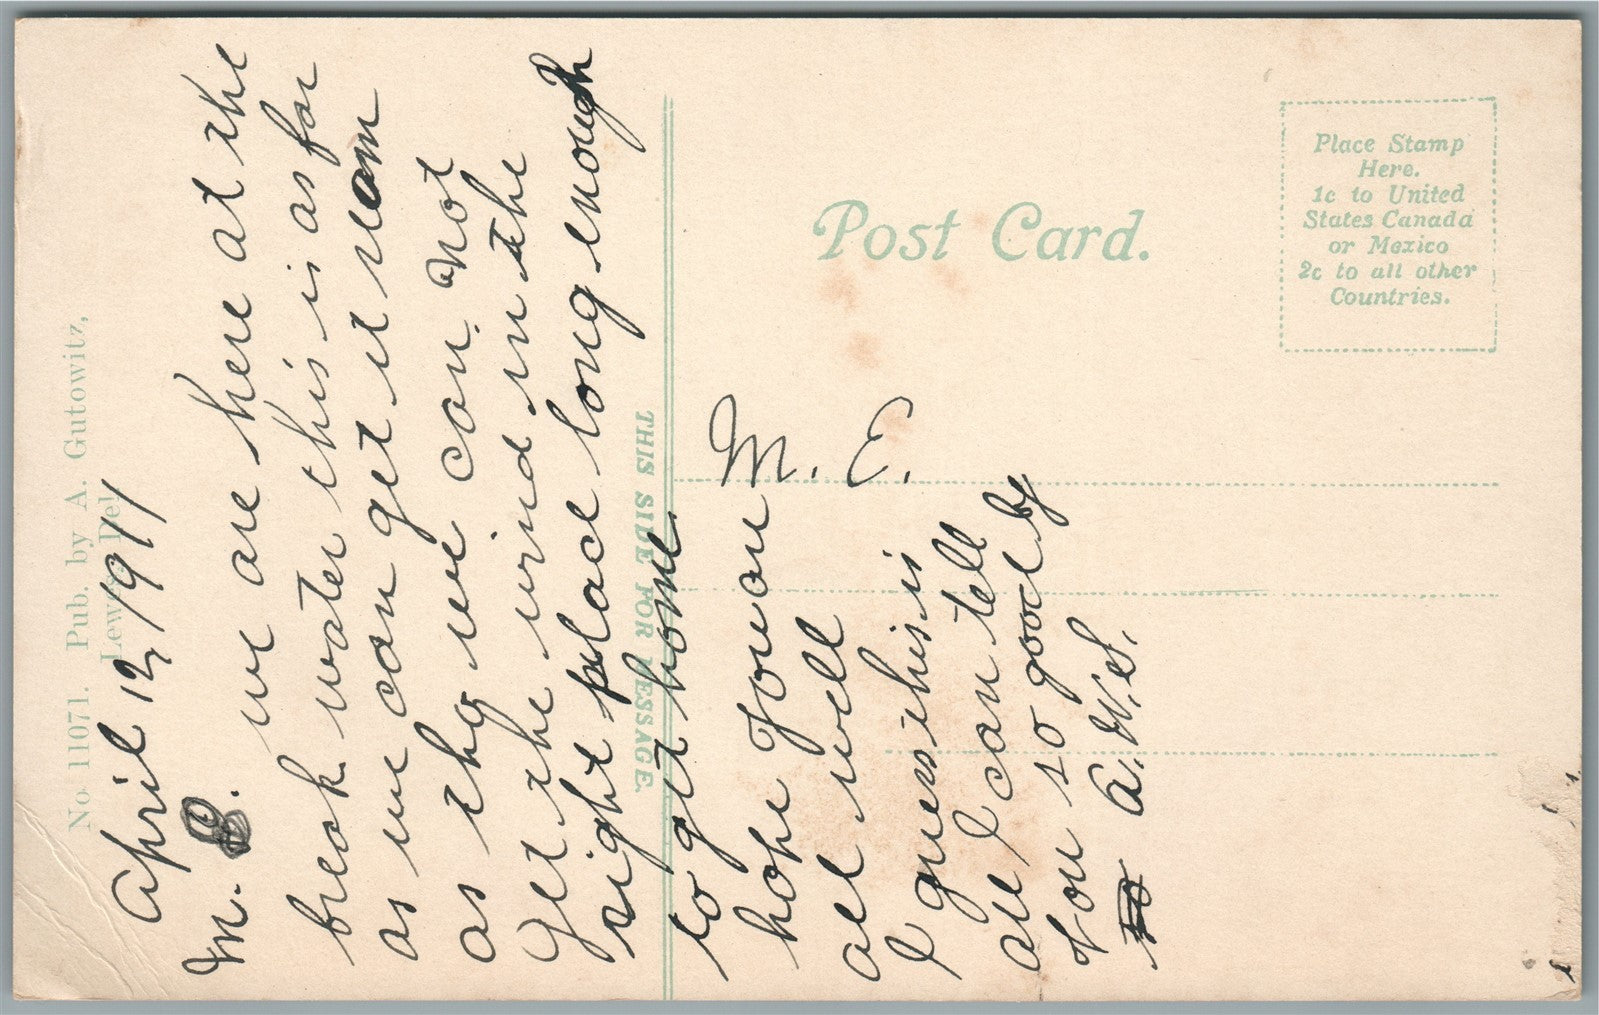 No. 11071. Pub. by A. Gutowitz,
Lewes, Del.
April 12, 1911
M. we are here at the
break water this is as far
as we can get it
as tho we can. Not
get the wind in the
right place long enough
to get home.
hope you are
all well
I guess this is
all I can tell
you so good by
A. W. S.
M. E.
THIS SIDE FOR MESSAGE.
Post Card.
Place Stamp
Here.
1c to United
States Canada
or Mexico
2c to all other
Countries.